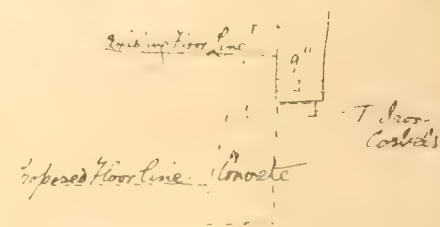 Existing Floor Line
9"
T Iron
Corbels
Proposed Floor line Concrete